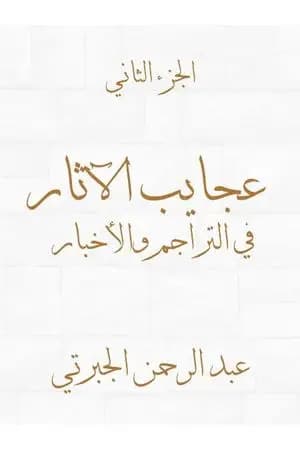 الجزء الثاني
عجايب الآثار
في التراجم والأخبار
عبد الرحمن الجبرتي